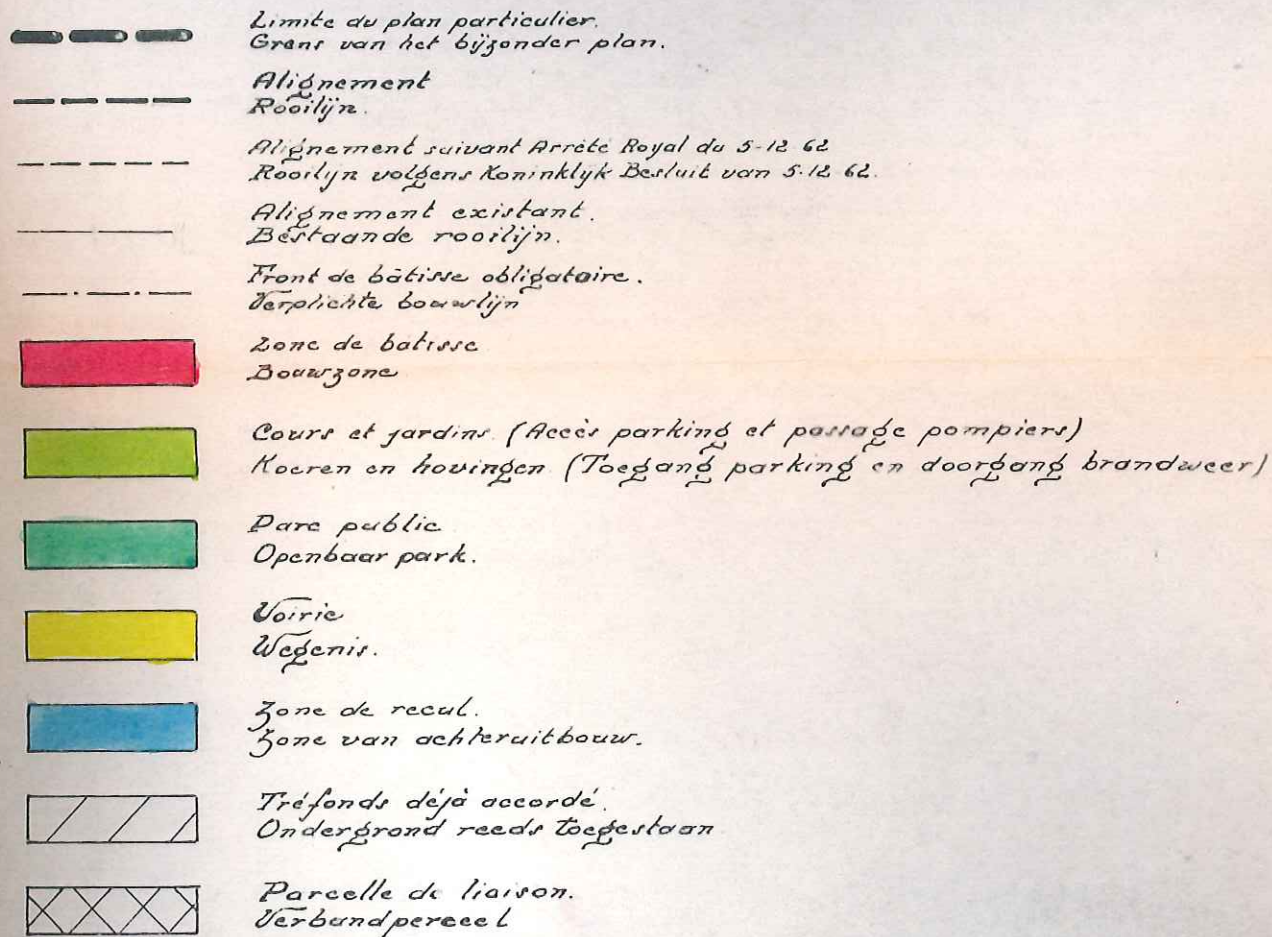 Limite du plan particulier.
Grens van het bijzonder plan.
Alignement
Rooilijn.
Alignement suivant Arrêté Royal du 5-12 62
Rooilyn volgens Koninklyk Besluit van 5.12 62.
Alignement existant.
Bestaande rooilijn.
Front de bâtisse obligatoire.
Verplichte bouwlijn
Zone de batisse
Bouwzone
Cours et jardins (Accès parking et passage pompiers)
Koeren en hovingen (Toegang parking en doorgang brandweer)
Parc public
Openbaar park.
Voirie
Wegenis.
Zone de recul.
Zone van achteruitbouw.
Tréfonds déjà accordé.
Ondergrond reeds toegestaan
Parcelle de liaison.
Verbandperceel